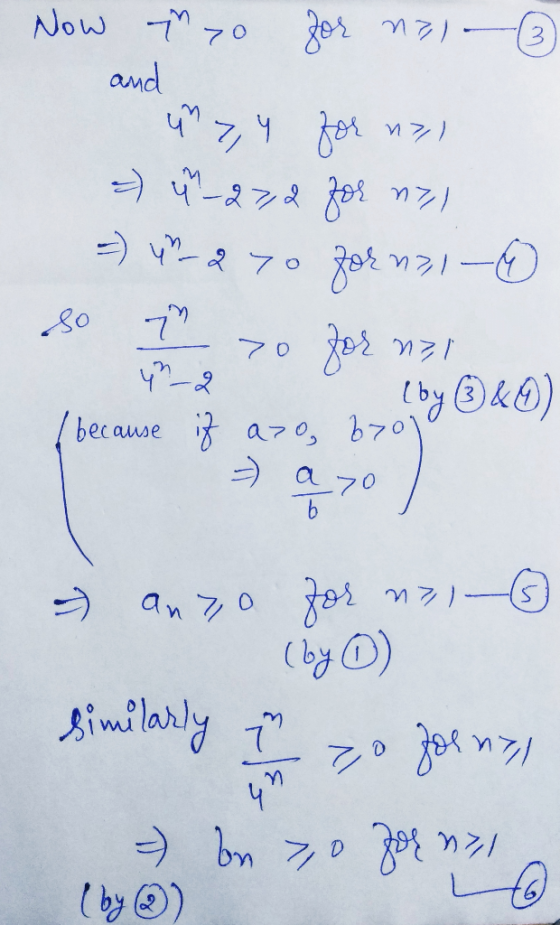 Now 7ⁿ > 0 for n ≥ 1 — ③
and
4ⁿ ≥ 4 for n ≥ 1
⇒ 4ⁿ - 2 ≥ 2 for n ≥ 1
⇒ 4ⁿ - 2 > 0 for n ≥ 1 — ④
so 7ⁿ/(4ⁿ - 2) > 0 for n ≥ 1
(by ③ & ④)
(because if a > 0, b > 0
⇒ a/b > 0)
⇒ aₙ ≥ 0 for n ≥ 1 — ⑤
(by ①)
similarly 7ⁿ/4ⁿ ≥ 0 for n ≥ 1
⇒ bₙ ≥ 0 for n ≥ 1
(by ②) — ⑥